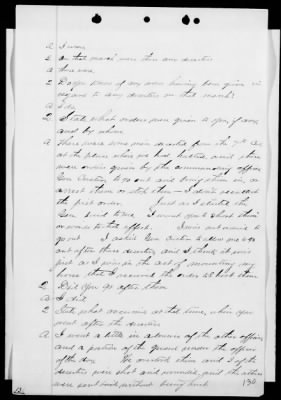 A I was.
Q On that march were there any deserters
A there were.
Q Do you know of any men having been given in
regard to any deserters on that march?
A I do.
Q State what orders were given to you if any
and by whom
A There were some men deserted from the 7th Cav
at the place where we had halted, and there
were orders given by the commanding officer
Gen Custer, to go out and bring them in
arrest them or stop them — I don't recollect
the first order. Just as I started the
Gen said to me I want you to shoot them
or words to that effect. I was not to
go out. I asked Gen Custer to allow me to go
out after these deserters, and I think it was
just as I was in the act of mounting my
horse that I received the order to shoot them
Q Did you go after them
A I did
Q State what occurred at that time, when you
went after the deserters
A I went a little in advance of the other officers
and a portion of the guard under the officer
of the day. We overtook them and 3 of the
deserters were shot and wounded, and the others
were sent back without being hurt.
130